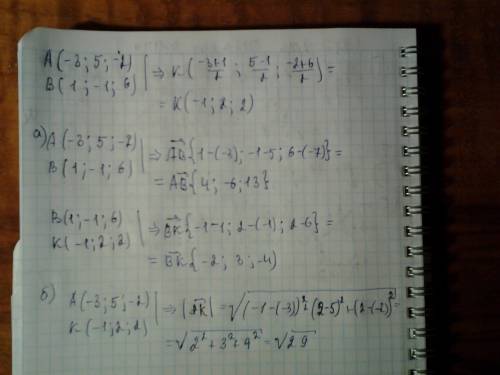 A(-3; 5; -2) | ⇒ K(\frac{-3+1}{2}; \frac{5-1}{2}; \frac{-2+6}{2}) =
B(1; -1; 6) | = K(-1; 2; 2)
а) A(-3; 5; -2) | ⇒ \overrightarrow{AB}{1-(-3); -1-5; 6-(-7)} =
B(1; -1; 6) | = \overrightarrow{AB}{4; -6; 13}
B(1; -1; 6) | ⇒ \overrightarrow{BK}{-1-1; 2-(-1); 2-6} =
K(-1; 2; 2) | = \overrightarrow{BK}{-2; 3; -4)
б) A(-3; 5; -2) | ⇒ |\overrightarrow{AK}| = \sqrt{(-1-(-3))^2+(2-5)^2+(2-(-2))^2} =
K(-1; 2; 2) | = \sqrt{2^2+3^2+4^2} = \sqrt{29}